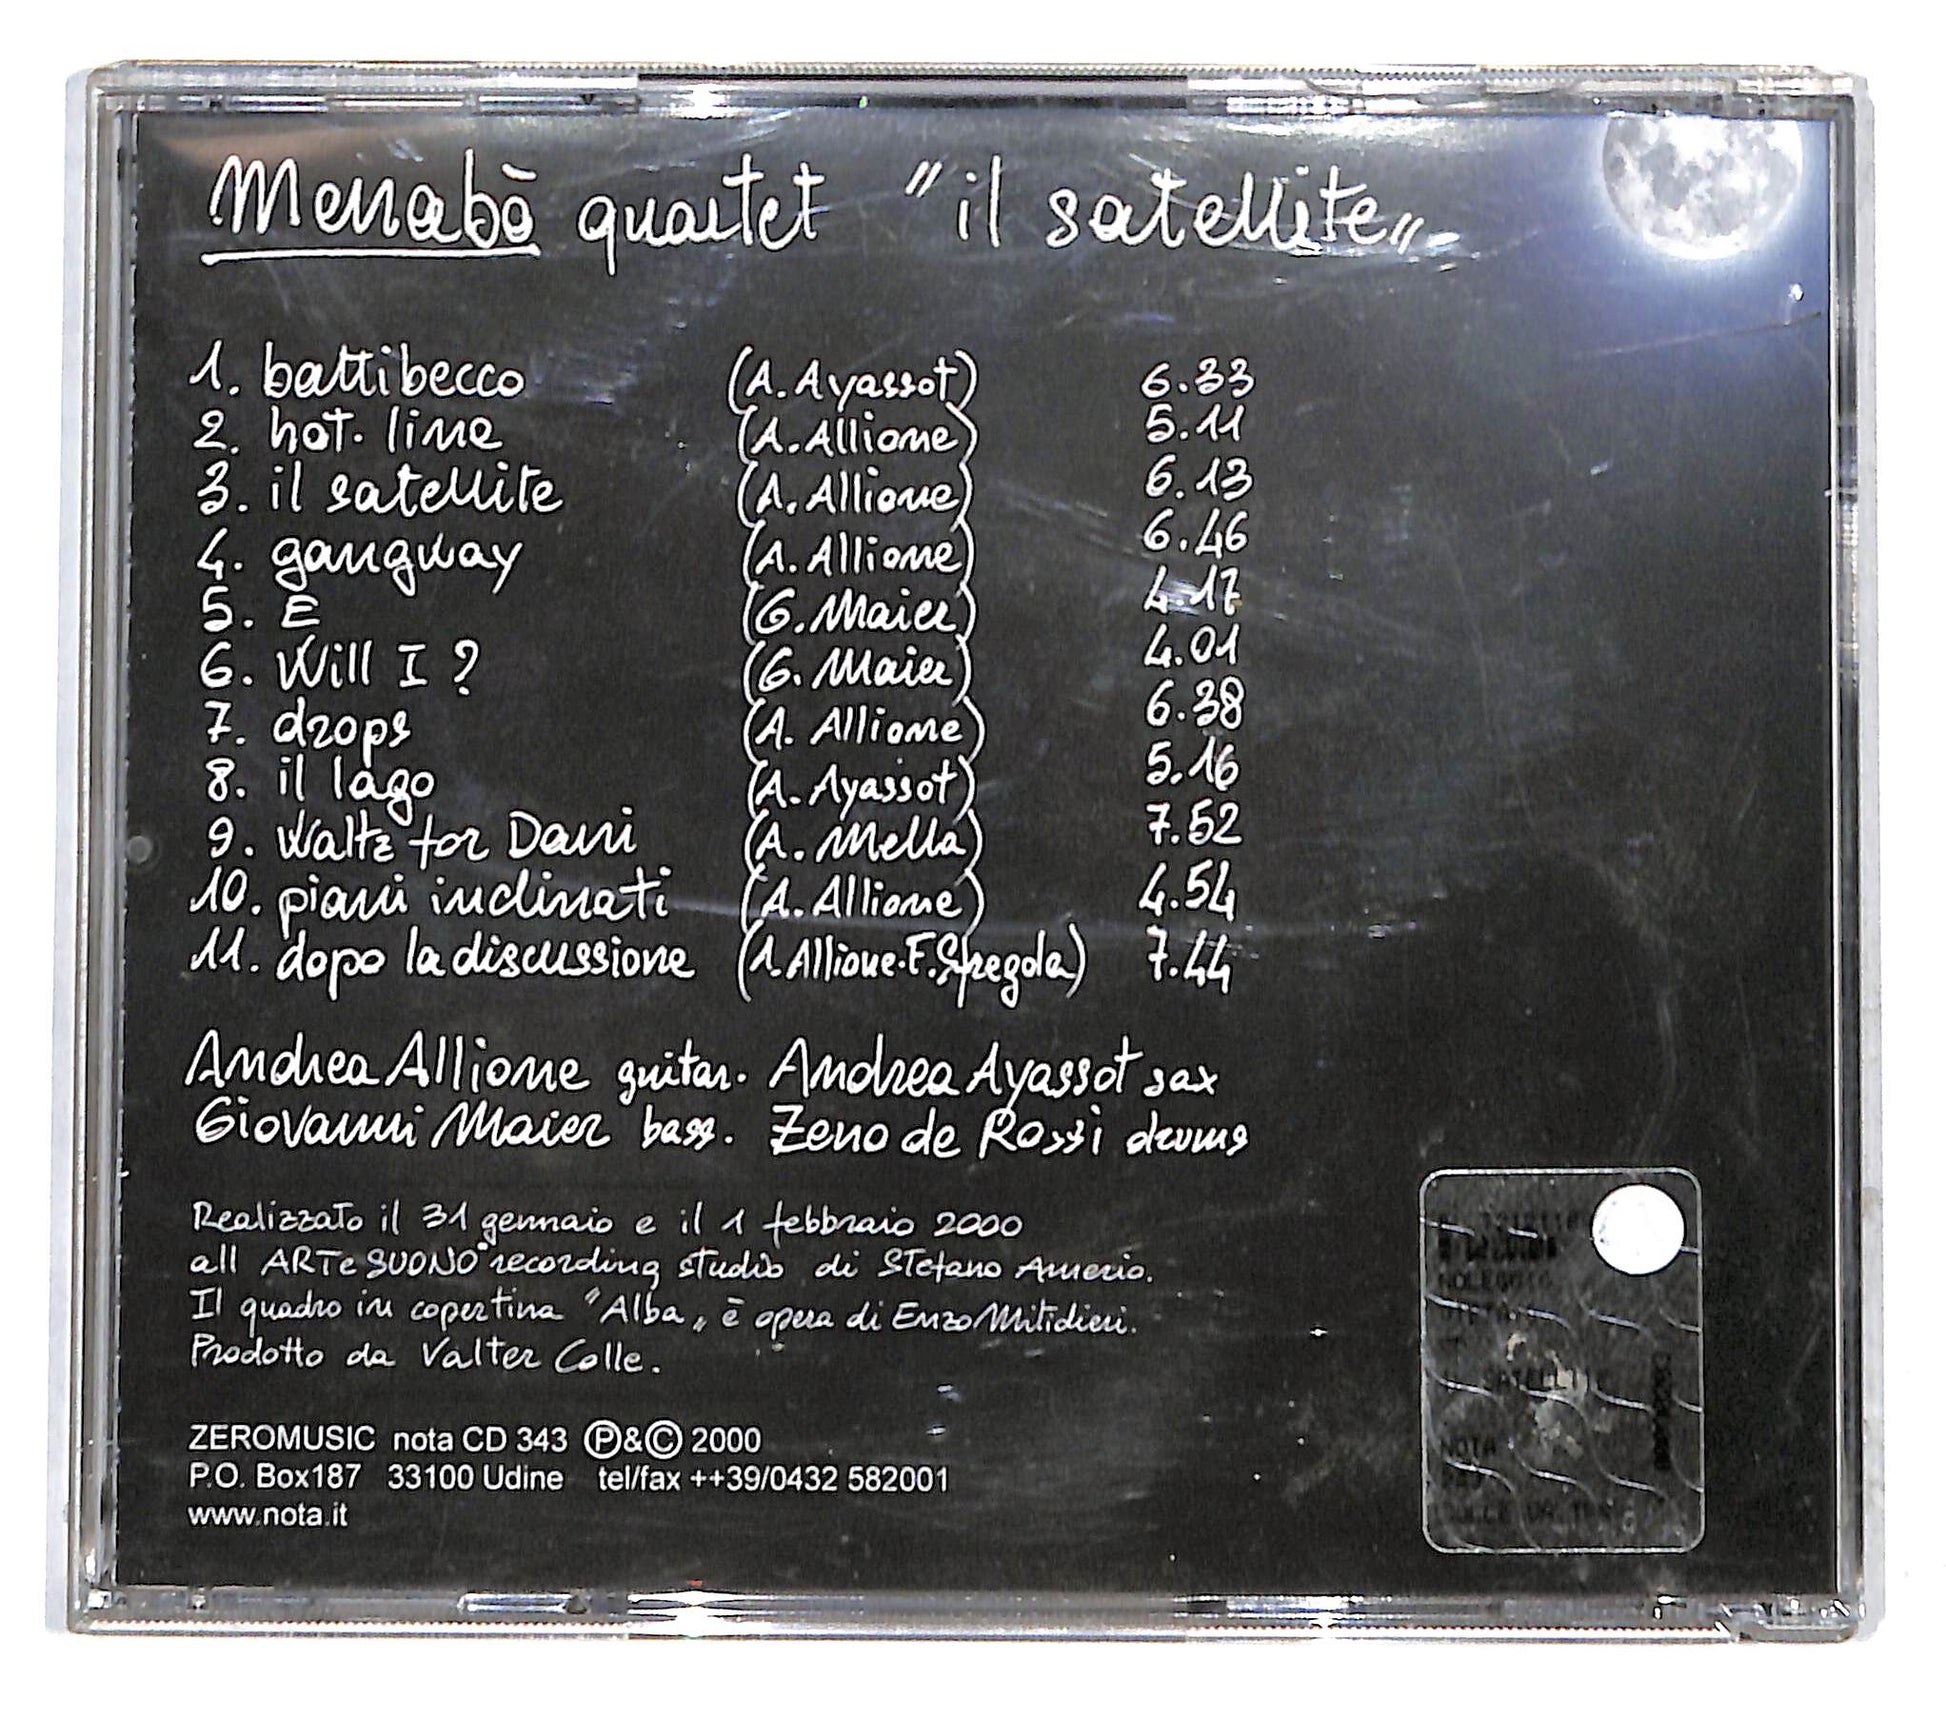 Menabò quartet "il satellite"
1. battibecco (A. Ayassot) 6.33
2. hot. line (A. Allione) 5.11
3. il satellite (A. Allione) 6.13
4. gangway (A. Allione) 6.46
5. E (G. Maier) 4.17
6. Will I ? (G. Maier) 4.01
7. drops (A. Allione) 6.38
8. il lago (A. Ayassot) 5.16
9. Waltz for Dani (A. Mella) 7.52
10. piani inclinati (A. Allione) 4.54
11. dopo la discussione (A. Allione. F. Spegola) 7.44
Andrea Allione guitar. Andrea Ayassot sax
Giovanni Maier bass. Zeno de Rossi drums
Realizzato il 31 gennaio e il 1 febbraio 2000
all ARTeSUONO" recording studio di Stefano Amerio.
Il quadro in copertina "Alba" è opera di Enzo Mitidieri.
Prodotto da Valter Colle.
ZEROMUSIC nota CD 343 Ⓟ&© 2000
P.O. Box187 33100 Udine tel/fax ++39/0432 582001
www.nota.it
NOLEGGIO
SATELLITE
NOTA